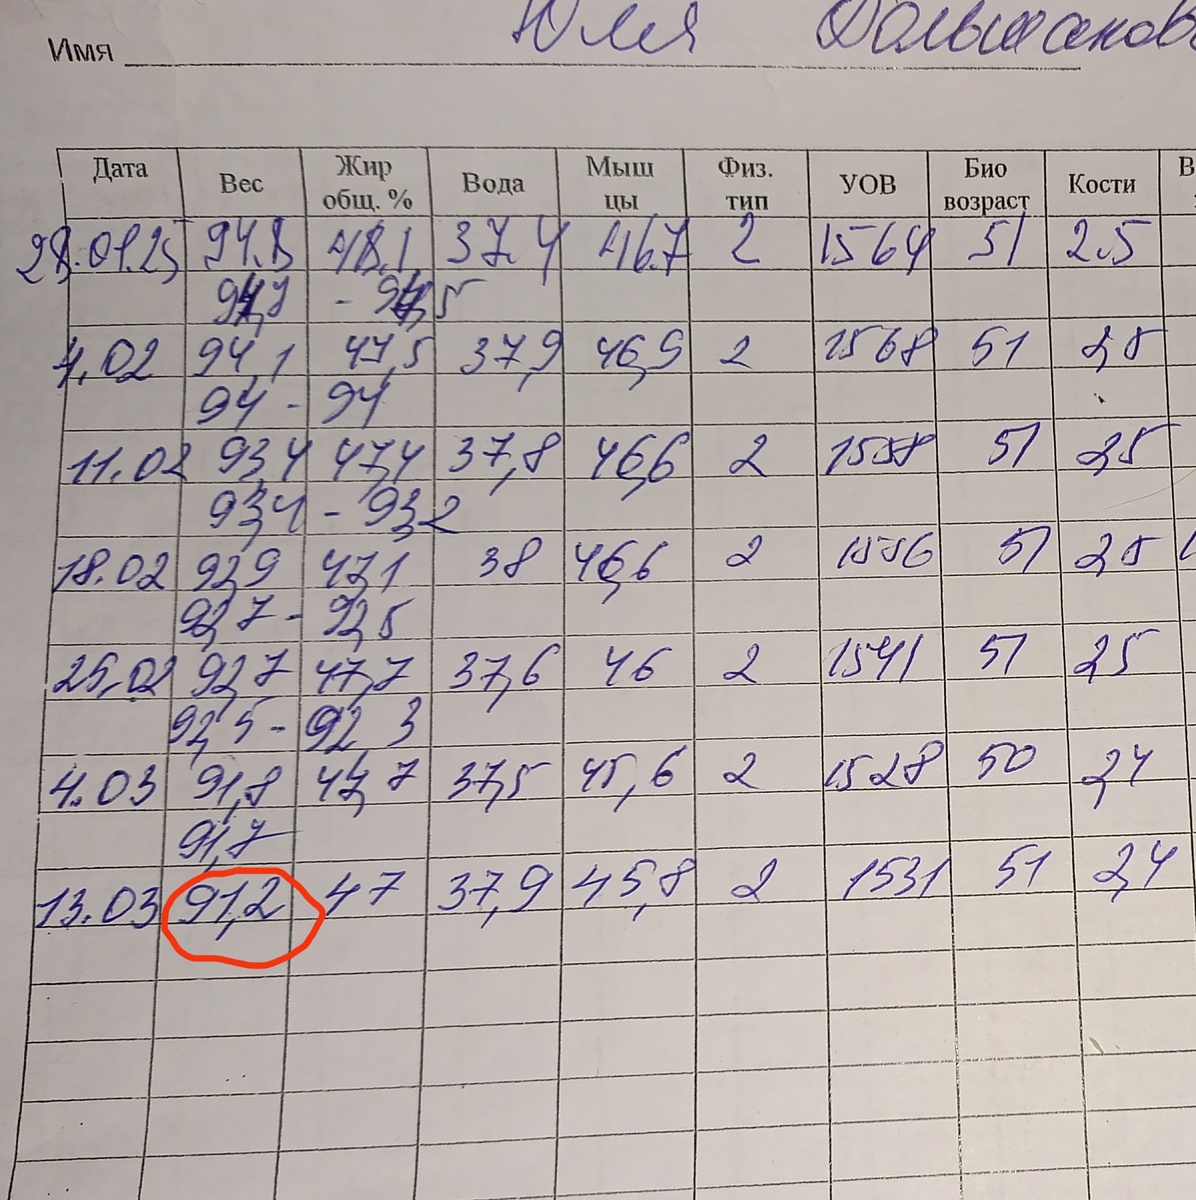 Имя Юля
Дата Вес Жир общ. % Вода Мыш цы Физ. тип УОВ Био возраст Кости В
28.01.25 94.8 48.1 37.4 46.7 2 1564 51 2.5
94,7 - 94,5
4.02 94,1 47,5 37,9 46,9 2 1568 51 2,5
94 - 94
11.02 93,4 47,4 37,8 46,6 2 1558 51 2,5
93,4 - 93,2
18.02 92,9 47,1 38 46,6 2 1556 51 2,5
92,7 - 92,5
25.02 92,7 47,7 37,6 46 2 1541 51 2,5
92,5 - 92,3
4.03 91,8 47,7 37,5 45,6 2 1528 50 2,4
91,7
13.03 91,2 47 37,9 45,8 2 1531 51 2,4